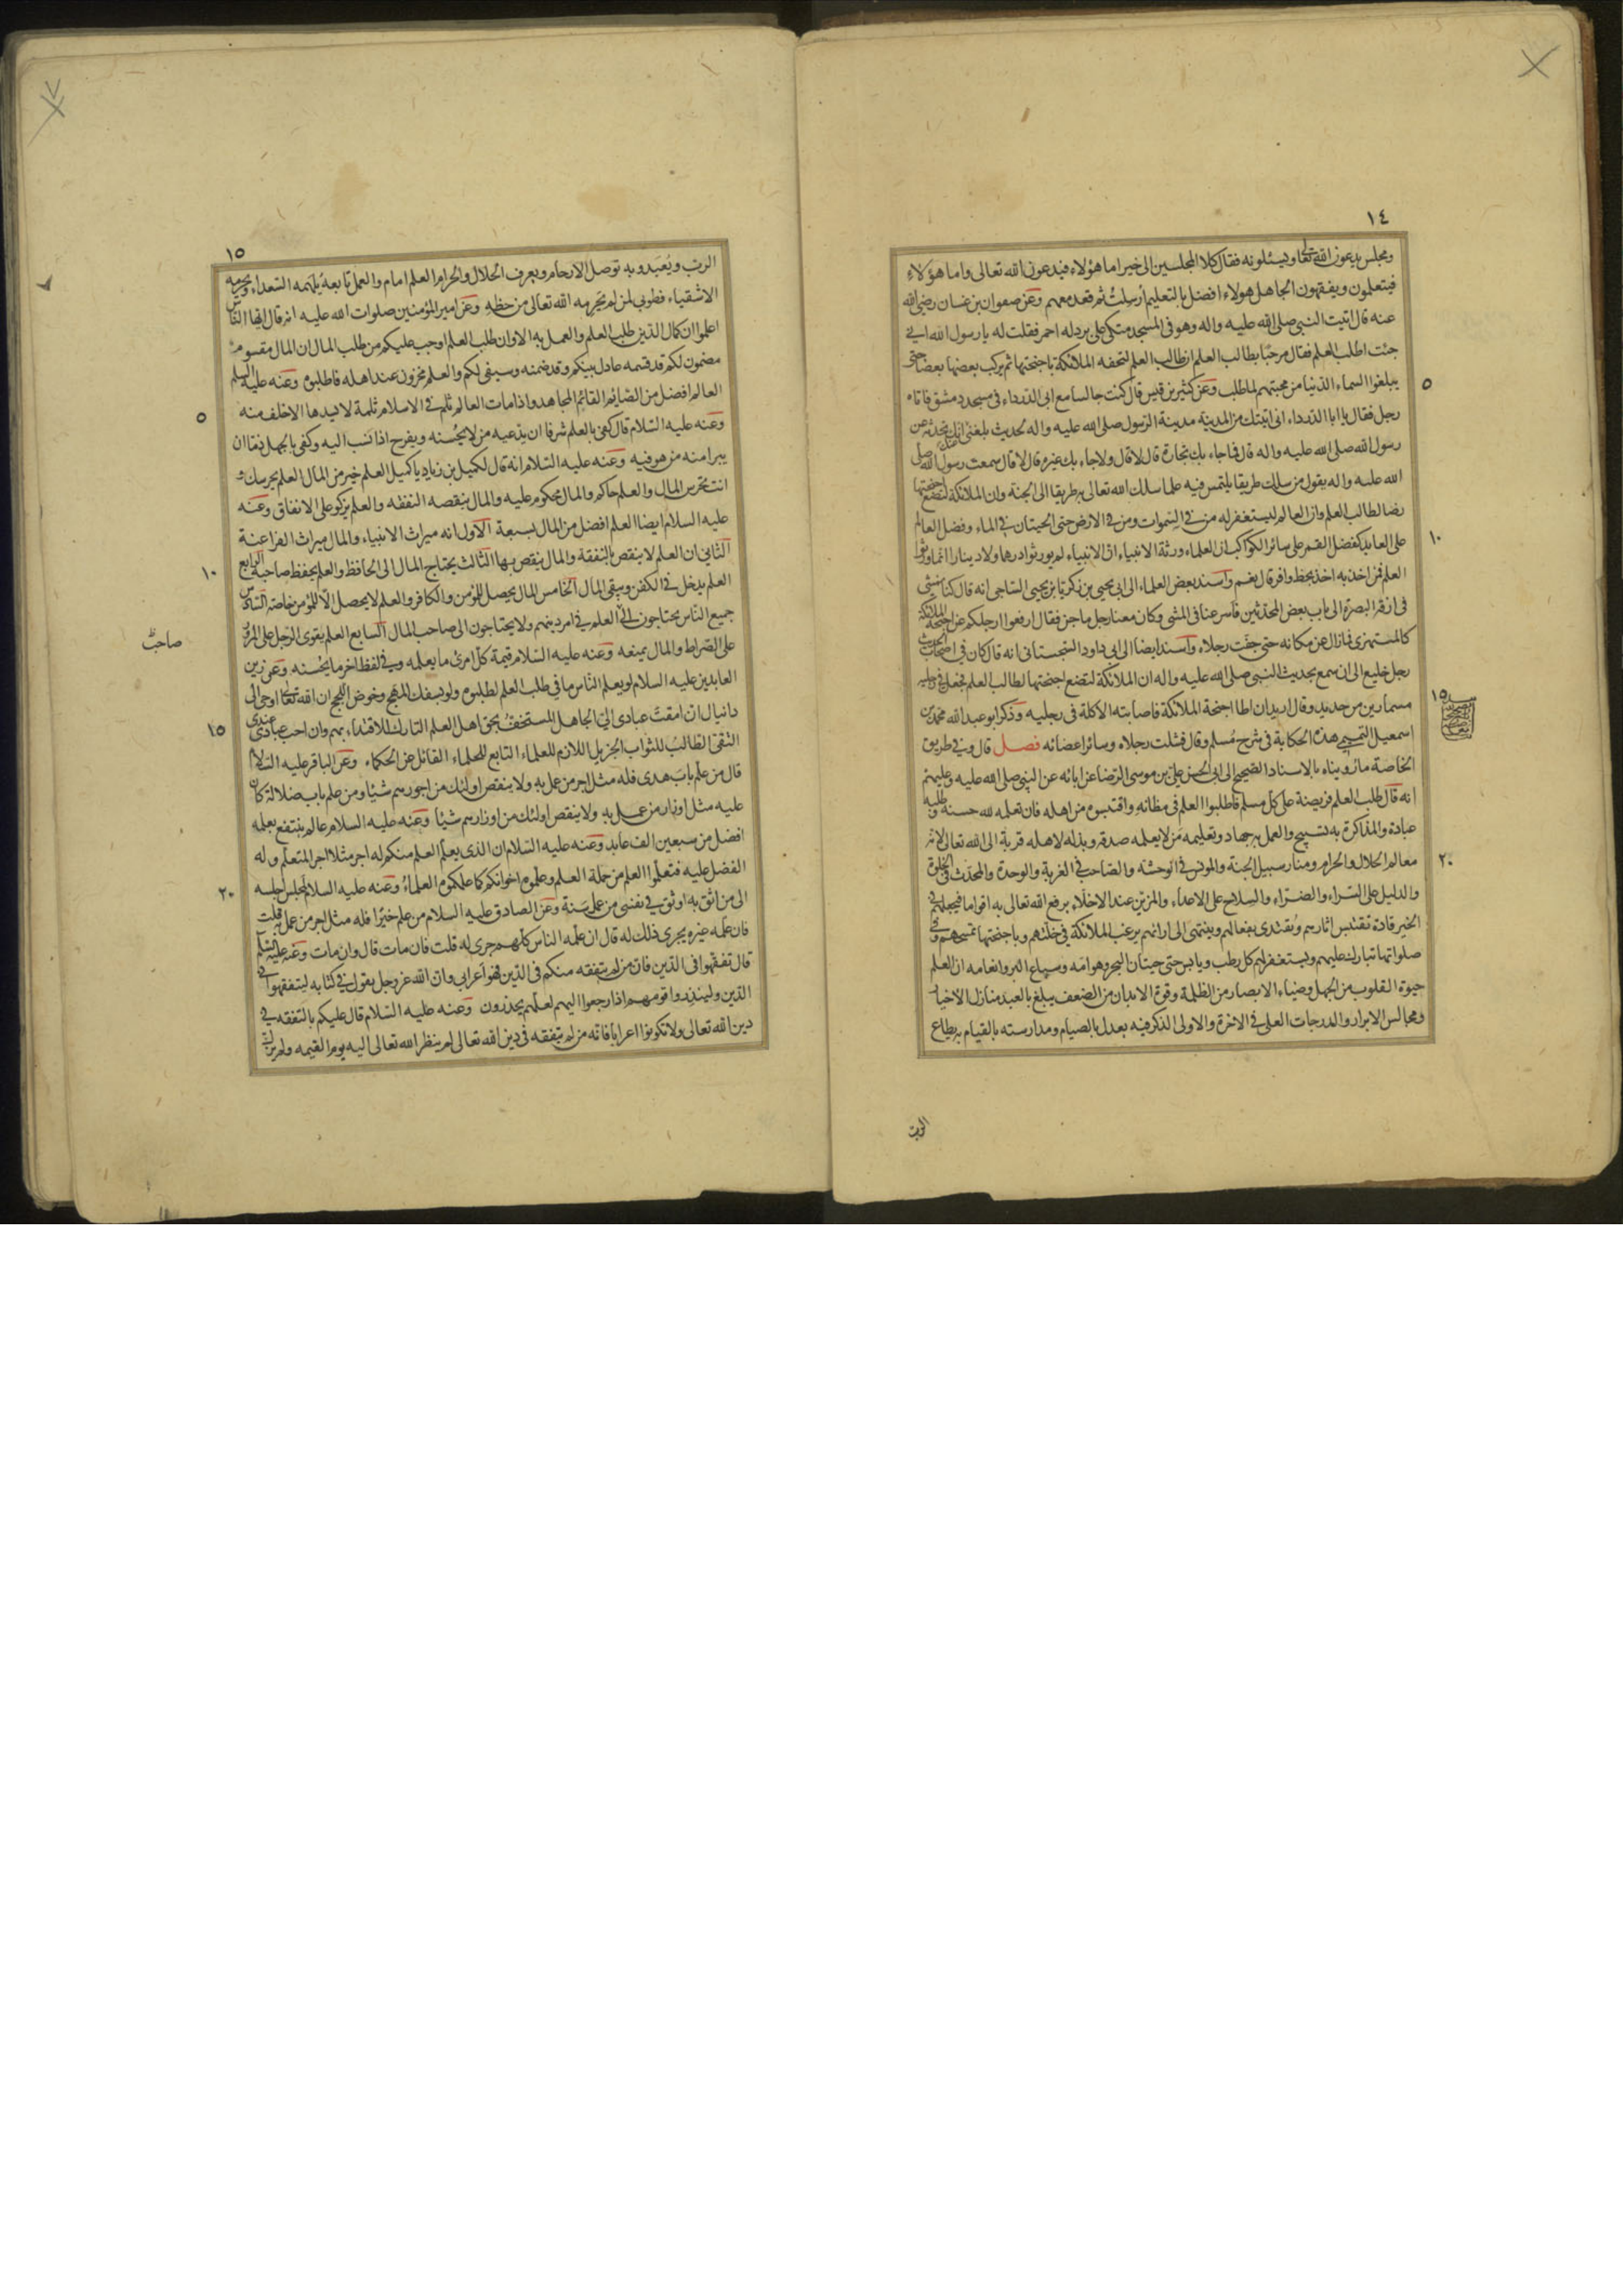 ١٤
ومجلس يدعون الله تعالى ويسئلونه فقال كلا المجلسين الى خير اما هؤلاء فيدعون الله تعالى واما هؤلاء
فيتعلمون ويفقهون الجاهل هولاء افضل بالتعليم أرسلتُ ثم قعد معهم وعن صفوان بن غسان رضى الله
عنه قال اتيت النبى صلى الله عليه واله وهو فى المسجد متكى على برد له احمر فقلت له يا رسول الله انى
جئت اطلب العلم فقال مرحبًا بطالب العلم ان طالب العلم لتحفه الملائكة باجنحتها ثم يركب بعضها بعضا حتى
يبلغوا السماء الدنيا من محبتهم لما طلب وعن كثير بن قيس قال كنت جالسا مع ابى الدرداء فى مسجد دمشق فاتاه
٥
رجل فقال يا ابا الدرداء انى اتيتك من المدينة مدينة الرسول صلى الله عليه واله لحديث بلغنى انك تحدثه عن
رسول الله صلى الله عليه واله قال فما جاء بك تجارة قال لا قال ولا جاء بك غيره قال لا قال سمعت رسول الله صلى
الله عليه واله يقول من سلك طريقا يلتمس فيه علما سلك الله تعالى به طريقا الى الجنة وان الملائكة لتضع اجنحتها
رضا لطالب العلم وان العالم ليستغفر له من فى السموات ومن فى الارض حتى الحيتان فى الماء وفضل العالم
على العابد كفضل القمر على سائر الكواكب ان العلماء ورثة الانبياء ان الانبياء لم يورثوا درهما ولا دينارا انما ورثوا
١٠
العلم فمن اخذ به اخذ بحظ وافر قال نعم واسند بعض العلماء الى ابى يحيى بن زكريا بن يحيى الساجى انه قال كنا نمشى
فى ازقة البصرة الى باب بعض المحدثين فاسرعنا فى المشى وكان معنا رجل ماجن فقال ارفعوا ارجلكم عن اجنحة الملائكة
كالمستهزئ فما زال عن مكانه حتى جفت رجلاه واسند ايضا الى ابى داود السجستانى انه قال كان فى اصحاب الحديث
رجل خليع الى ان سمع بحديث النبى صلى الله عليه واله ان الملائكة لتضع اجنحتها لطالب العلم فجعل فى رجليه
مسمارين من حديد وقال اريد ان اطا اجنحة الملائكة فاصابته الاكلة فى رجليه وذكر ابو عبد الله محمد بن
١٥
اسمعيل التميمى هذه الحكاية فى شرح مُسلم وقال فشلت رجلاه وسائر اعضائه فصل قال وفى طريق
الخاصة ما رويناه بالاسناد الصحيح الى ابى الحسن على بن موسى الرضا عن ابائه عن النبى صلى الله عليه وعليهم
انه قال طلب العلم فريضة على كل مسلم فاطلبوا العلم فى مظانه واقتبسوه من اهله فان تعلمه لله حسنة وطلبه
عبادة والمذاكرة به تسبيح والعمل به جهاد وتعليمه من لا يعلمه صدقة وبذله لاهله قربة الى الله تعالى لانه
معالم الحلال والحرام ومنار سبيل الجنة والمونس فى الوحشة والصاحب فى الغربة والوحدة والمحدث فى الخلوة
٢٠
والدليل على السراء والضراء والسلاح على الاعداء والزين عند الاخلاء يرفع الله تعالى به اقواما فيجعلهم فى
الخير قادة تقتبس اثارهم ويُقتدى بفعالهم وينتهى الى ارائهم يرغب الملائكة فى خلتهم وباجنحتها تمسحهم وفى
صلواتها تبارك عليهم ويستغفر لهم كل رطب ويابس حتى حيتان البحر وهوامه وسباع البر وانعامه ان العلم
حيوة القلوب من الجهل وضياء الابصار من الظلمة وقوة الابدان من الضعف يبلغ بالعبد منازل الاخيار
ومجالس الابرار والدرجات العلى فى الاخرة والاولى الذكر فيه يعدل بالصيام ومدارسته بالقيام به يطاع
الرب
١٥
الرب ويُعبَد وبه توصل الارحام ويعرف الحلال والحرام العلم امام والعمل تابعه يُلهمه السعداء ويحرمه
الاشقياء فطوبى لمن لم يحرمه الله تعالى من حظه وعن امير المؤمنين صلوات الله عليه انه قال ايها الناس
اعلموا ان كمال الدين طلب العلم والعمل به الا وان طلب العلم اوجب عليكم من طلب المال ان المال مقسوم
مضمون لكم قد قسمه عادل بينكم وقد ضمنه وسيفى لكم والعلم مخزون عند اهله فاطلبوه وعنه عليه السلم
العالم افضل من الصائم القائم المجاهد واذا مات العالم ثلم فى الاسلام ثلمة لا يسدها الا خلف منه
٥
وعنه عليه السلام قال كفى بالعلم شرفا ان يدعيه من لا يحسنه ويفرح اذا نسب اليه وكفى بالجهل ذما ان
يبرا منه من هو فيه وعنه عليه السلام انه قال لكميل بن زياد يا كميل العلم خير من المال العلم يحرسك و
انت تحرس المال والعلم حاكم والمال محكوم عليه والمال ينقصه النفقه والعلم يزكو على الانفاق وعنه
عليه السلام ايضا العلم افضل من المال بسبعة الاول انه ميراث الانبياء والمال ميراث الفراعنة
الثانى ان العلم لا ينقص بالنفقة والمال ينقص بها الثالث يحتاج المال الى الحافظ والعلم يحفظ صاحبه الرابع
١٠
العلم يدخل فى الكفن ويبقى المال الخامس المال يحصل للمؤمن والكافر والعلم لا يحصل الا للمؤمن خاصة السادس
جميع الناس يحتاجون الى العلم فى امر دينهم ولا يحتاجون الى صاحب المال السابع العلم يقوى الرجل على المرور
صاحب
على الصراط والمال يمنعه وعنه عليه السلام قيمة كل امرئ ما يعلمه وفى لفظ اخر ما يحسنه وعن زين
العابدين عليه السلام لو يعلم الناس ما فى طلب العلم لطلبوه ولو بسفك المهج وخوض اللجج ان الله تعالى اوحى الى
دانيال ان امقت عبادى الى الجاهل المستخف بحق اهل العلم التارك للاقتداء بهم وان احب عبادى عندى
١٥
التقى الطالب للثواب الجزيل اللازم للعلماء التابع للحلماء القائل عن الحكماء وعن الباقر عليه السلام
قال من علم باب هدى فله مثل اجر من عمل به ولا ينقص اولئك من اجورهم شيئا ومن علم باب ضلالة كان
عليه مثل اوزار من عمل به ولا ينقص اولئك من اوزارهم شيئا وعنه عليه السلام عالم ينتفع بعلمه
افضل من سبعين الف عابد وعنه عليه السلام ان الذى يعلم العلم منكم له اجر مثلا اجر المتعلم وله
الفضل عليه فتعلموا العلم من حملة العلم وعلموه اخوانكم كما علمكوه العلماءُ وعنه عليه السلام لمجلس اجلسه
٢٠
الى من اثق به اوثق فى نفسى من عمل سَنة وعن الصادق عليه السلام من علم خيرا فله مثل اجر من عمل به قلت
فان علمه غيره يجرى ذلك له قال ان علمه الناس كلهم جرى له قلت فان مات قال وان مات وعنه عليه السلم
قال تفقهوا فى الدين فان من لم يتفقه منكم فى الدين فهو أعرابى وان الله عز وجل يقول فى كتابه ليتفقهوا فى
الدين ولينذروا قومهم اذا رجعوا اليهم لعلهم يحذرون وعنه عليه السلام قال عليكم بالتفقه فى
دين الله تعالى ولا تكونوا اعرابا فانه من لم يتفقه فى دين الله تعالى لم ينظر الله تعالى اليه يوم القيمه ولم يزك